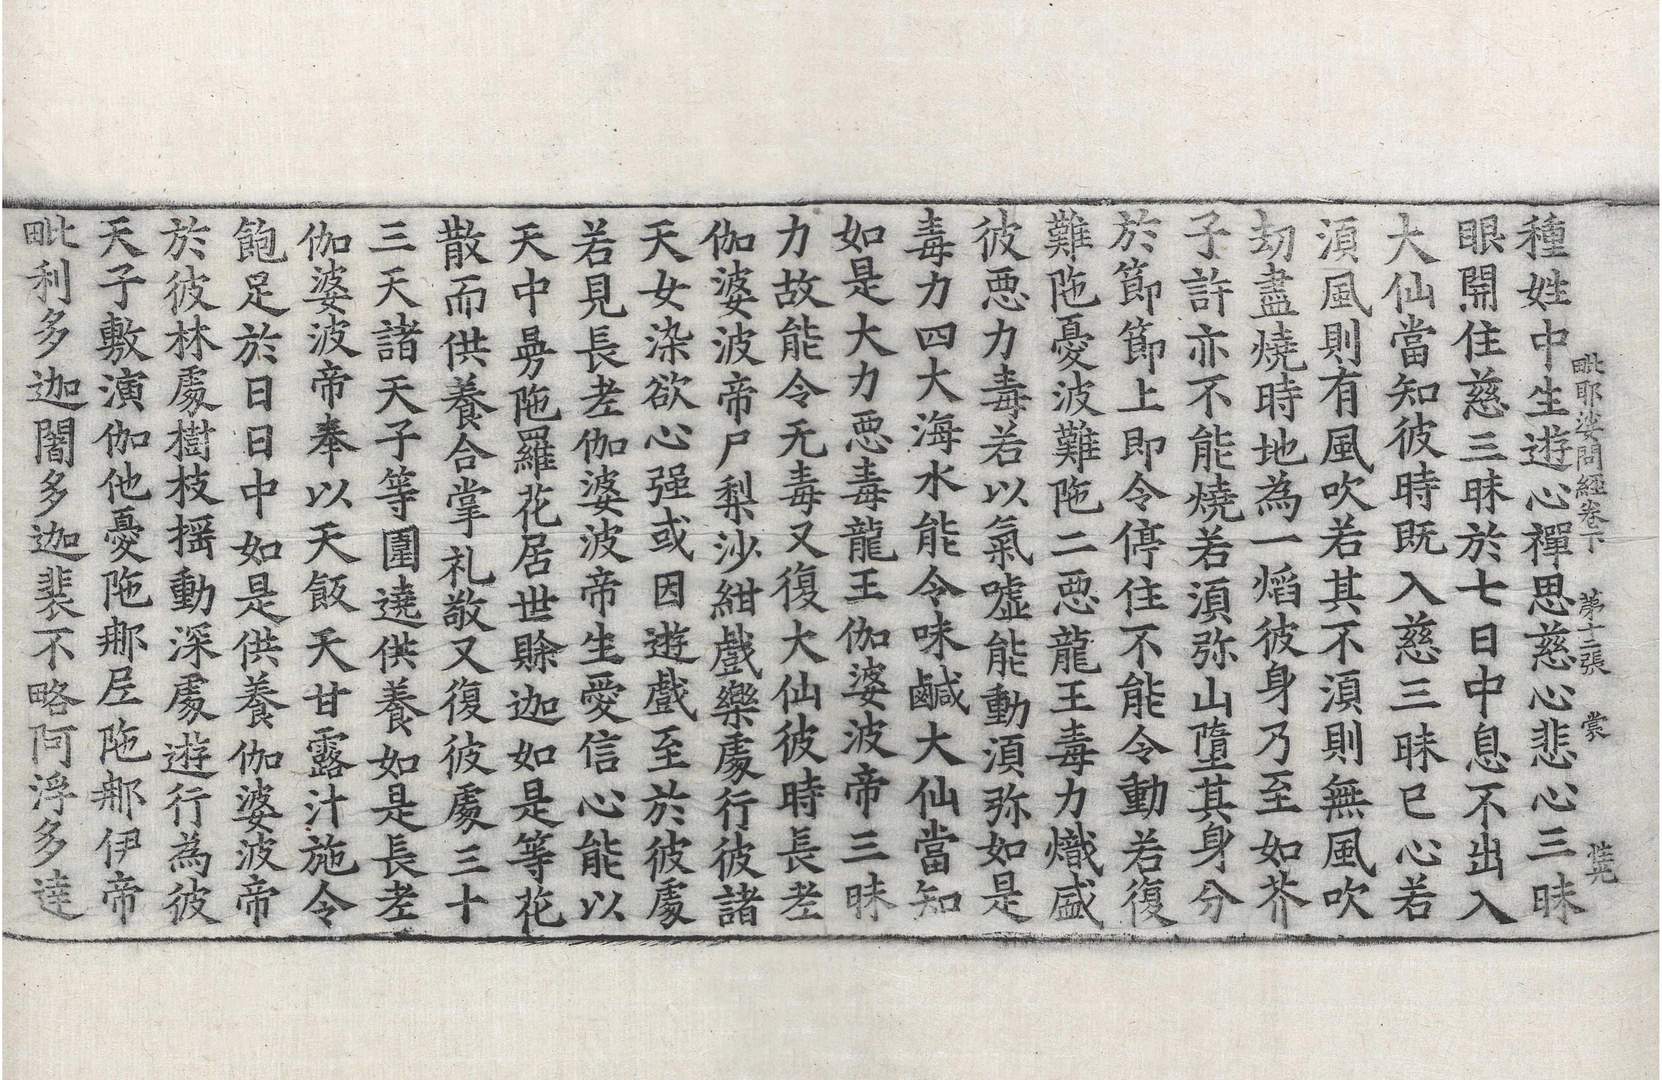 毗耶娑問經卷下　第十二張　裳
種姓中生遊心禪思慈心悲心三昧
眼開住慈三昧於七日中息不出入
大仙當知彼時既入慈三昧已心若
湏風則有風吹若其不湏則無風吹
劫盡燒時地為一焰彼身乃至如芥
子許亦不能燒若湏弥山墮其身分
於節節上即令停住不能令動若復
難陁憂波難陁二惡龍王毒力熾盛
彼惡力毒若以氣噓能動湏弥如是
毒力四大海水能令味鹹大仙當知
如是大力惡毒龍王伽婆波帝三昧
力故能令无毒又復大仙彼時長老
伽婆波帝尸梨沙紺戲樂處行彼諸
天女染欲心强或因遊戲至於彼處
若見長老伽婆波帝生愛信心能以
天中曼陁羅花居世賖迦如是等花
散而供養合掌礼敬又復彼處三十
三天諸天子等圍遶供養如是長老
伽婆波帝奉以天飯天甘露汁施令
飽足於日日中如是供養伽婆波帝
於彼林處樹枝揺動深處遊行為彼
天子敷演伽他憂陁那尼陁那伊帝
毗利多迦闍多迦裴不略阿浮多達